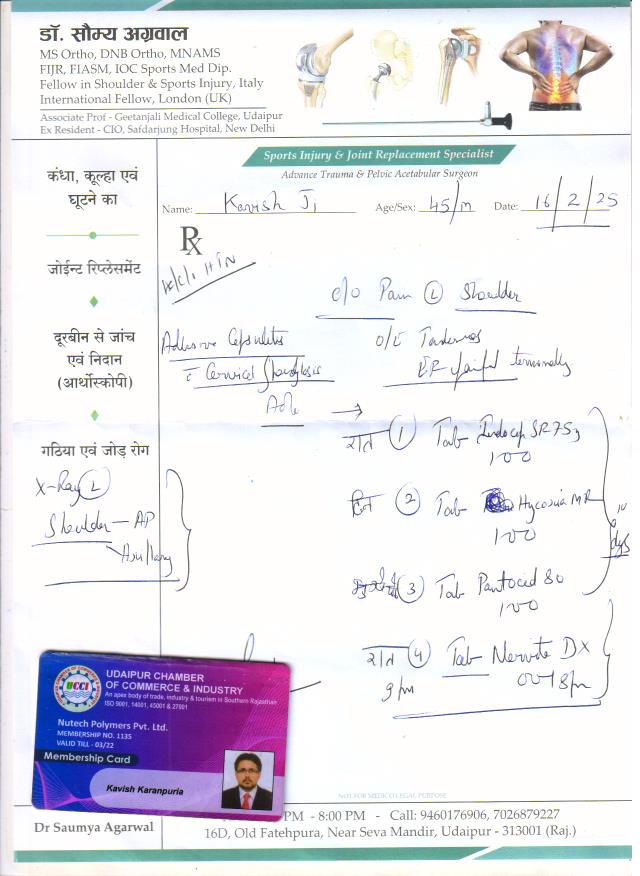 डॉ. सौम्य अग्रवाल
MS Ortho, DNB Ortho, MNAMS
FIJR, FIASM, IOC Sports Med Dip.
Fellow in Shoulder & Sports Injury, Italy
International Fellow, London (UK)
Associate Prof - Geetanjali Medical College, Udaipur
Ex Resident - CIO, Safdarjung Hospital, New Delhi
Sports Injury & Joint Replacement Specialist
Advance Trauma & Pelvic Acetabular Surgeon
Name: Kavish Ji Age/Sex: 45/m Date: 16/2/25
Rx
K/c/o HTN
c/o Pain (L) Shoulder
Adhesive Capsulitis
c Cervical Spondylosis
O/E Tenderness
ER painful terminally
Adv →
रात (1) Tab Indocap SR 75
100
दिन (2) Tab Hycosia MR
100
(3) Tab Pantocid 80
100
10 dys
रात (4) Tab Nervite DX
9 pm
कंधा, कूल्हा एवं
घूटने का
जोईन्ट रिप्लेसमेंट
दूरबीन से जांच
एवं निदान
(आर्थोस्कोपी)
गठिया एवं जोड़ रोग
X-Ray (L)
Shoulder - AP
Axillary
UCCI
UDAIPUR CHAMBER
OF COMMERCE & INDUSTRY
An apex body of trade, industry & tourism in Southern Rajasthan
ISO 9001, 14001, 45001 & 27001
Nutech Polymers Pvt. Ltd.
MEMBERSHIP NO. 1135
VALID TILL - 03/22
Membership Card
Kavish Karanpuria
NOT FOR MEDICO LEGAL PURPOSE
Dr Saumya Agarwal
PM - 8:00 PM - Call: 9460176906, 7026879227
16D, Old Fatehpura, Near Seva Mandir, Udaipur - 313001 (Raj.)